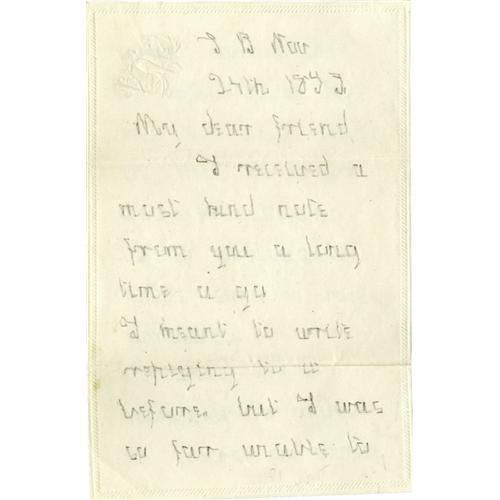 S B Nov
24th 18
My dear friend,
I received a
most kind note
from you a long
time a go
I meant to write
replying to it
before. but I was
so far unable to